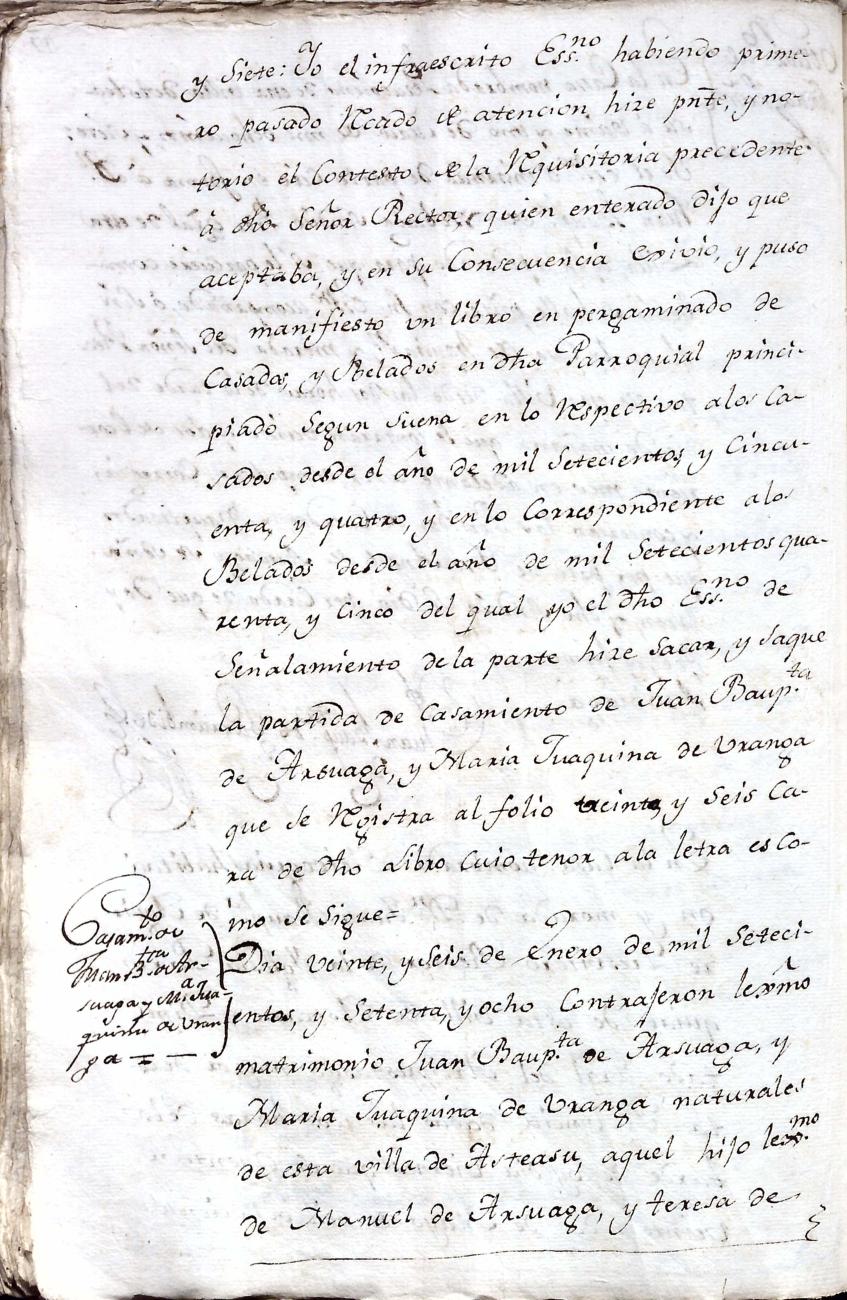 y Siete: Yo el infraescrito Ess.no habiendo prime-
ro pasado Rcado de atencion hize pnte, y no-
torio el Contesto de la Rquisitoria precedente
à dho Señor Rector, quien enterado dijo que
aceptaba, y en su Consecuencia exivio, y puso
de manifiesto un libro en pergaminado de
Casados, y Belados en dha Parroquial princi-
piado Segun Suena en lo Respectivo a los Ca-
sados desde el año de mil Setecientos, y Cincu-
enta, y quatro, y en lo Correspondiente a los
Belados desde el año de mil Setecientos qua-
renta, y Cinco del qual yo el dho Ess.no de
Señalamiento de la parte hize Sacar, y Saque
la partida de Casamiento de Juan Baup.ta
de Arsuaga, y Maria Juaquina de Uranga
que se Rgistra al folio treinta, y Seis Ca-
ra de dho Libro Cuio tenor a la letra es Co-
mo se sigue=
Casam.to de
Juan B.ta de Ar-
suaga y M.a Jua-
quina de Uran
ga = —
Dia veinte, y seis de Enero de mil Seteci-
entos, y Setenta, y ocho Contrajeron lexmo
matrimonio Juan Baup.ta de Arsuaga, y
Maria Juaquina de Uranga naturales
de esta villa de Asteasu, aquel hijo lex.mo
de Manuel de Arsuaga, y teresa de